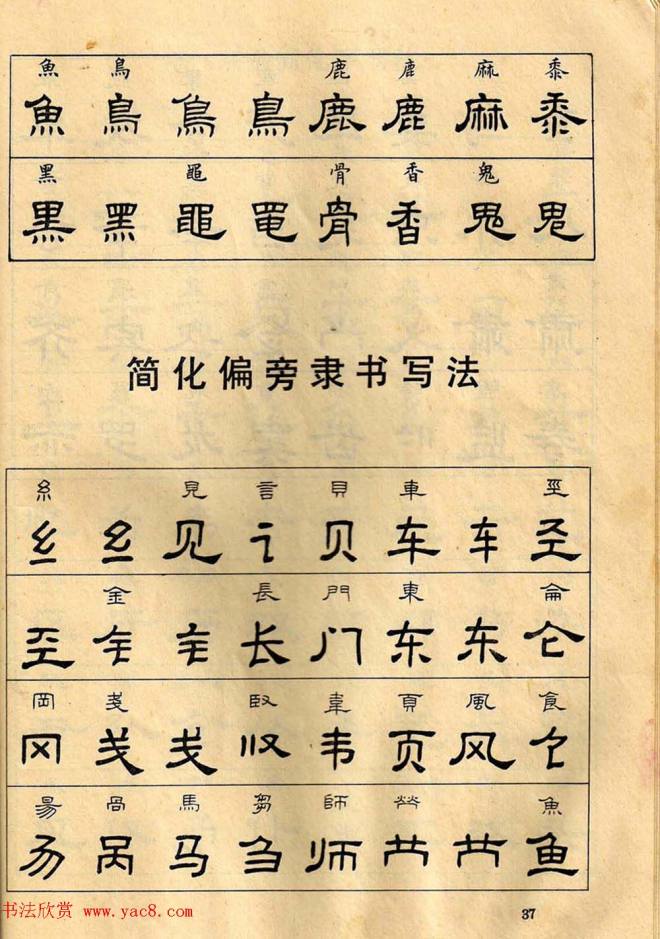 魚 鳥 鹿 鹿 麻 黍
魚 鳥 鳥 鳥 鹿 鹿 麻 黍
黑 黽 骨 香 鬼
黑 黑 黽 黽 骨 香 鬼 鬼
简化偏旁隶书写法
糹 見 言 貝 車 巠
纟 纟 见 讠 贝 车 车 圣
金 長 門 東 侖
钅 钅 长 门 东 东 仑
岡 戔 臤 韋 頁 風 食
冈 戋 戋 韦 页 风 饣
昜 咼 馬 芻 師 魚
呙 马 刍 师 鱼
书法欣赏 www.yac8.com
37